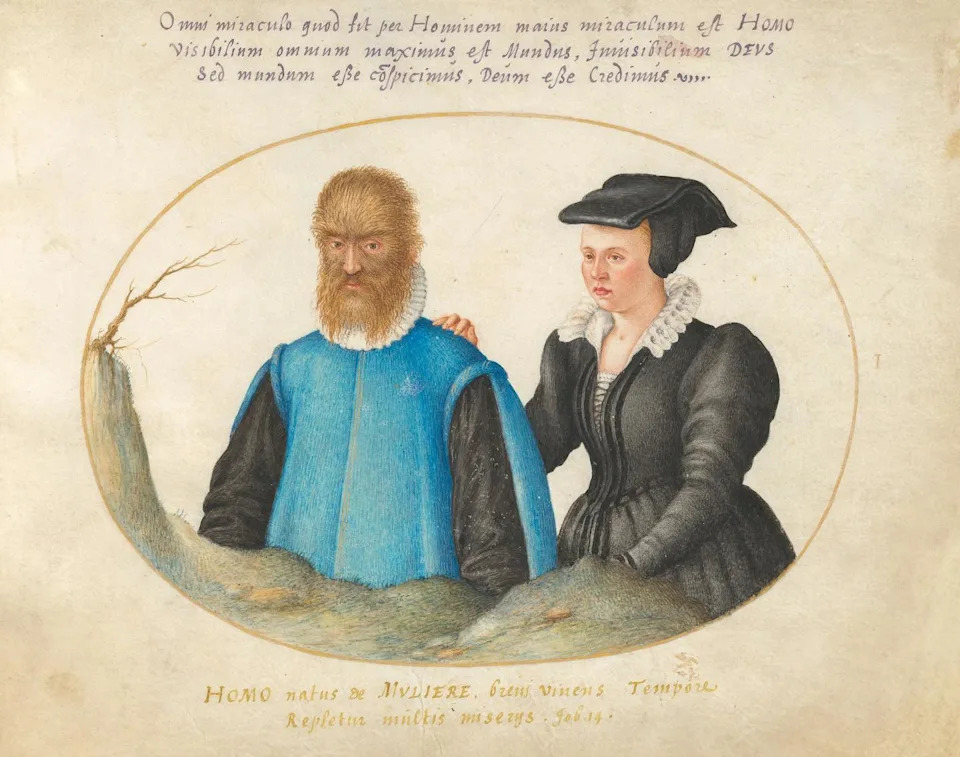 Omni miraculo quod fit per Hominem maius miraculum est HOMO
Visibilium omnium maximus est Mundus, Inuisibilium DEVS
Sed mundum eße cōspicimus, Deum eße Credimus
HOMO natus de MVLIERE, breui viuens Tempore
Repletur multis miserys. Job 14.
I